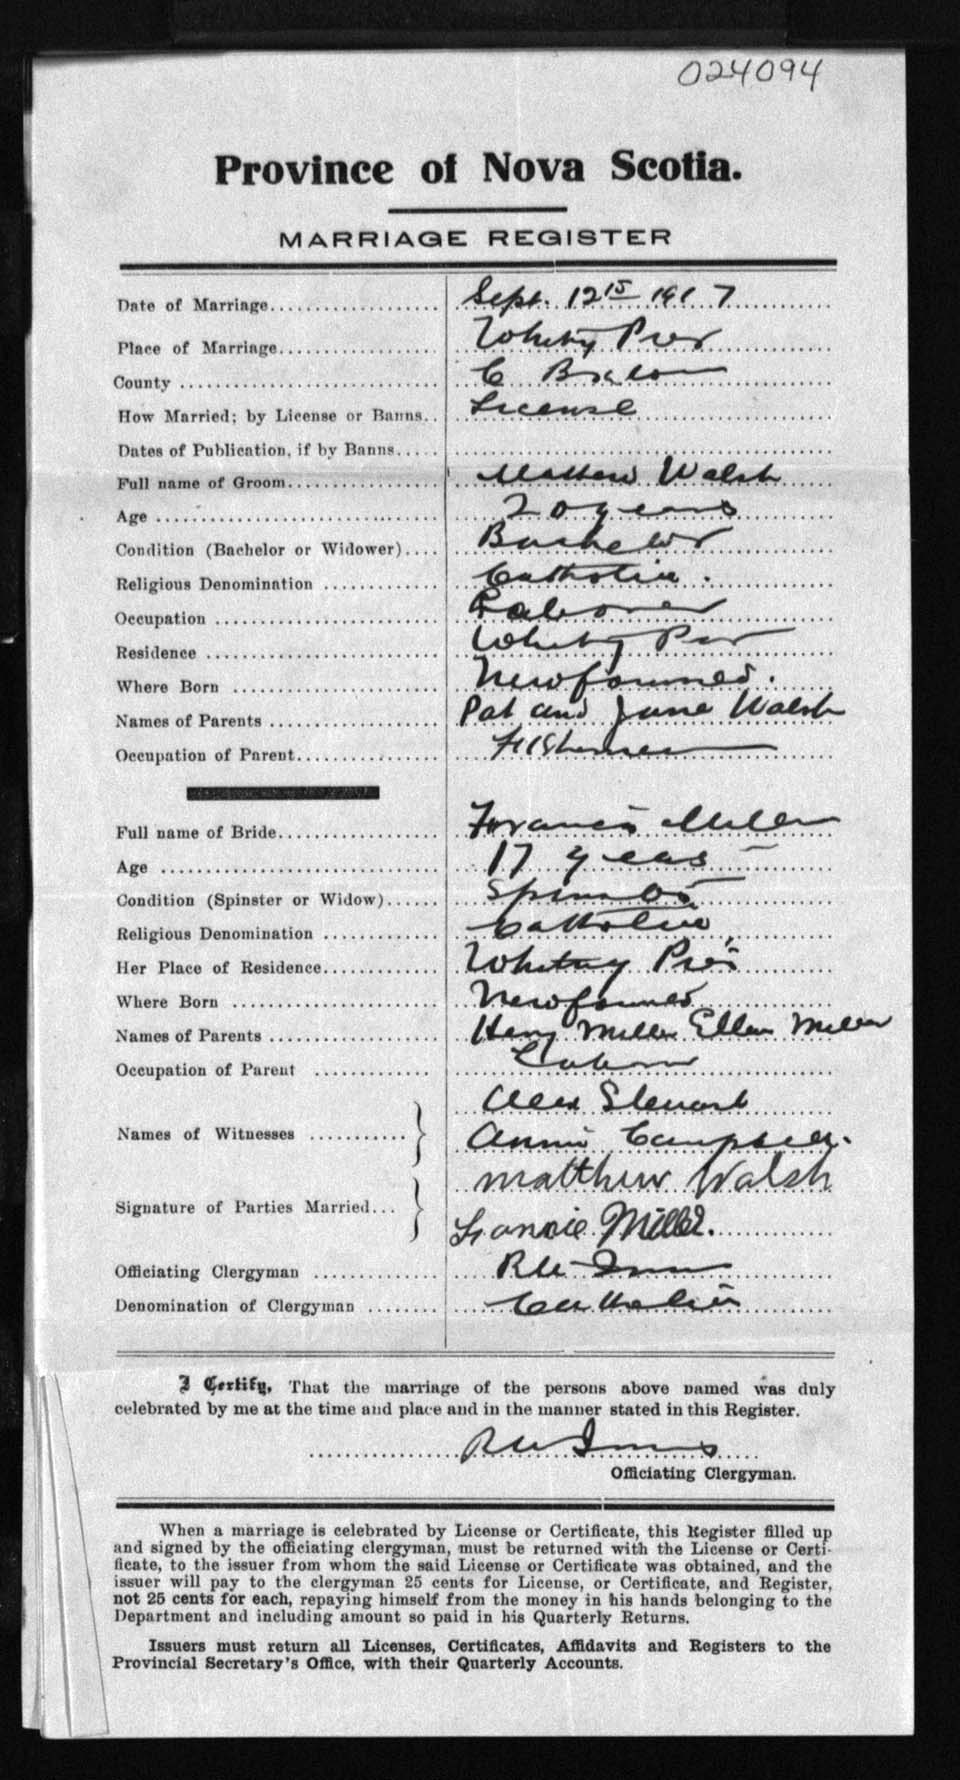 024094
Province of Nova Scotia.
MARRIAGE REGISTER
Date of Marriage Sept. 12 1917
Place of Marriage Whitny Pier
County C Breton
How Married; by License or Banns License
Dates of Publication, if by Banns
Full name of Groom Mathew Walsh
Age 20 years
Condition (Bachelor or Widower) Bachelor
Religious Denomination Catholic.
Occupation Laborer
Residence Whitny Pier
Where Born Newfound.
Names of Parents Pat and Jane Walsh
Occupation of Parent Fisherman
Full name of Bride Francis Miller
Age 17 years
Condition (Spinster or Widow) Spinster
Religious Denomination Catholic
Her Place of Residence Whitney Pier
Where Born Newfound
Names of Parents Henry Miller Ellen Miller
Occupation of Parent Laborer
Names of Witnesses Alex Stewart
Annie Campbell.
Signature of Parties Married Matthew Walsh
Fannie Miller.
Officiating Clergyman
Denomination of Clergyman Catholic
I Certify, That the marriage of the persons above named was duly
celebrated by me at the time and place and in the manner stated in this Register.
Officiating Clergyman.
When a marriage is celebrated by License or Certificate, this Register filled up
and signed by the officiating clergyman, must be returned with the License or Certi-
ficate, to the issuer from whom the said License or Certificate was obtained, and the
issuer will pay to the clergyman 25 cents for License, or Certificate, and Register,
not 25 cents for each, repaying himself from the money in his hands belonging to the
Department and including amount so paid in his Quarterly Returns.
Issuers must return all Licenses, Certificates, Affidavits and Registers to the
Provincial Secretary's Office, with their Quarterly Accounts.